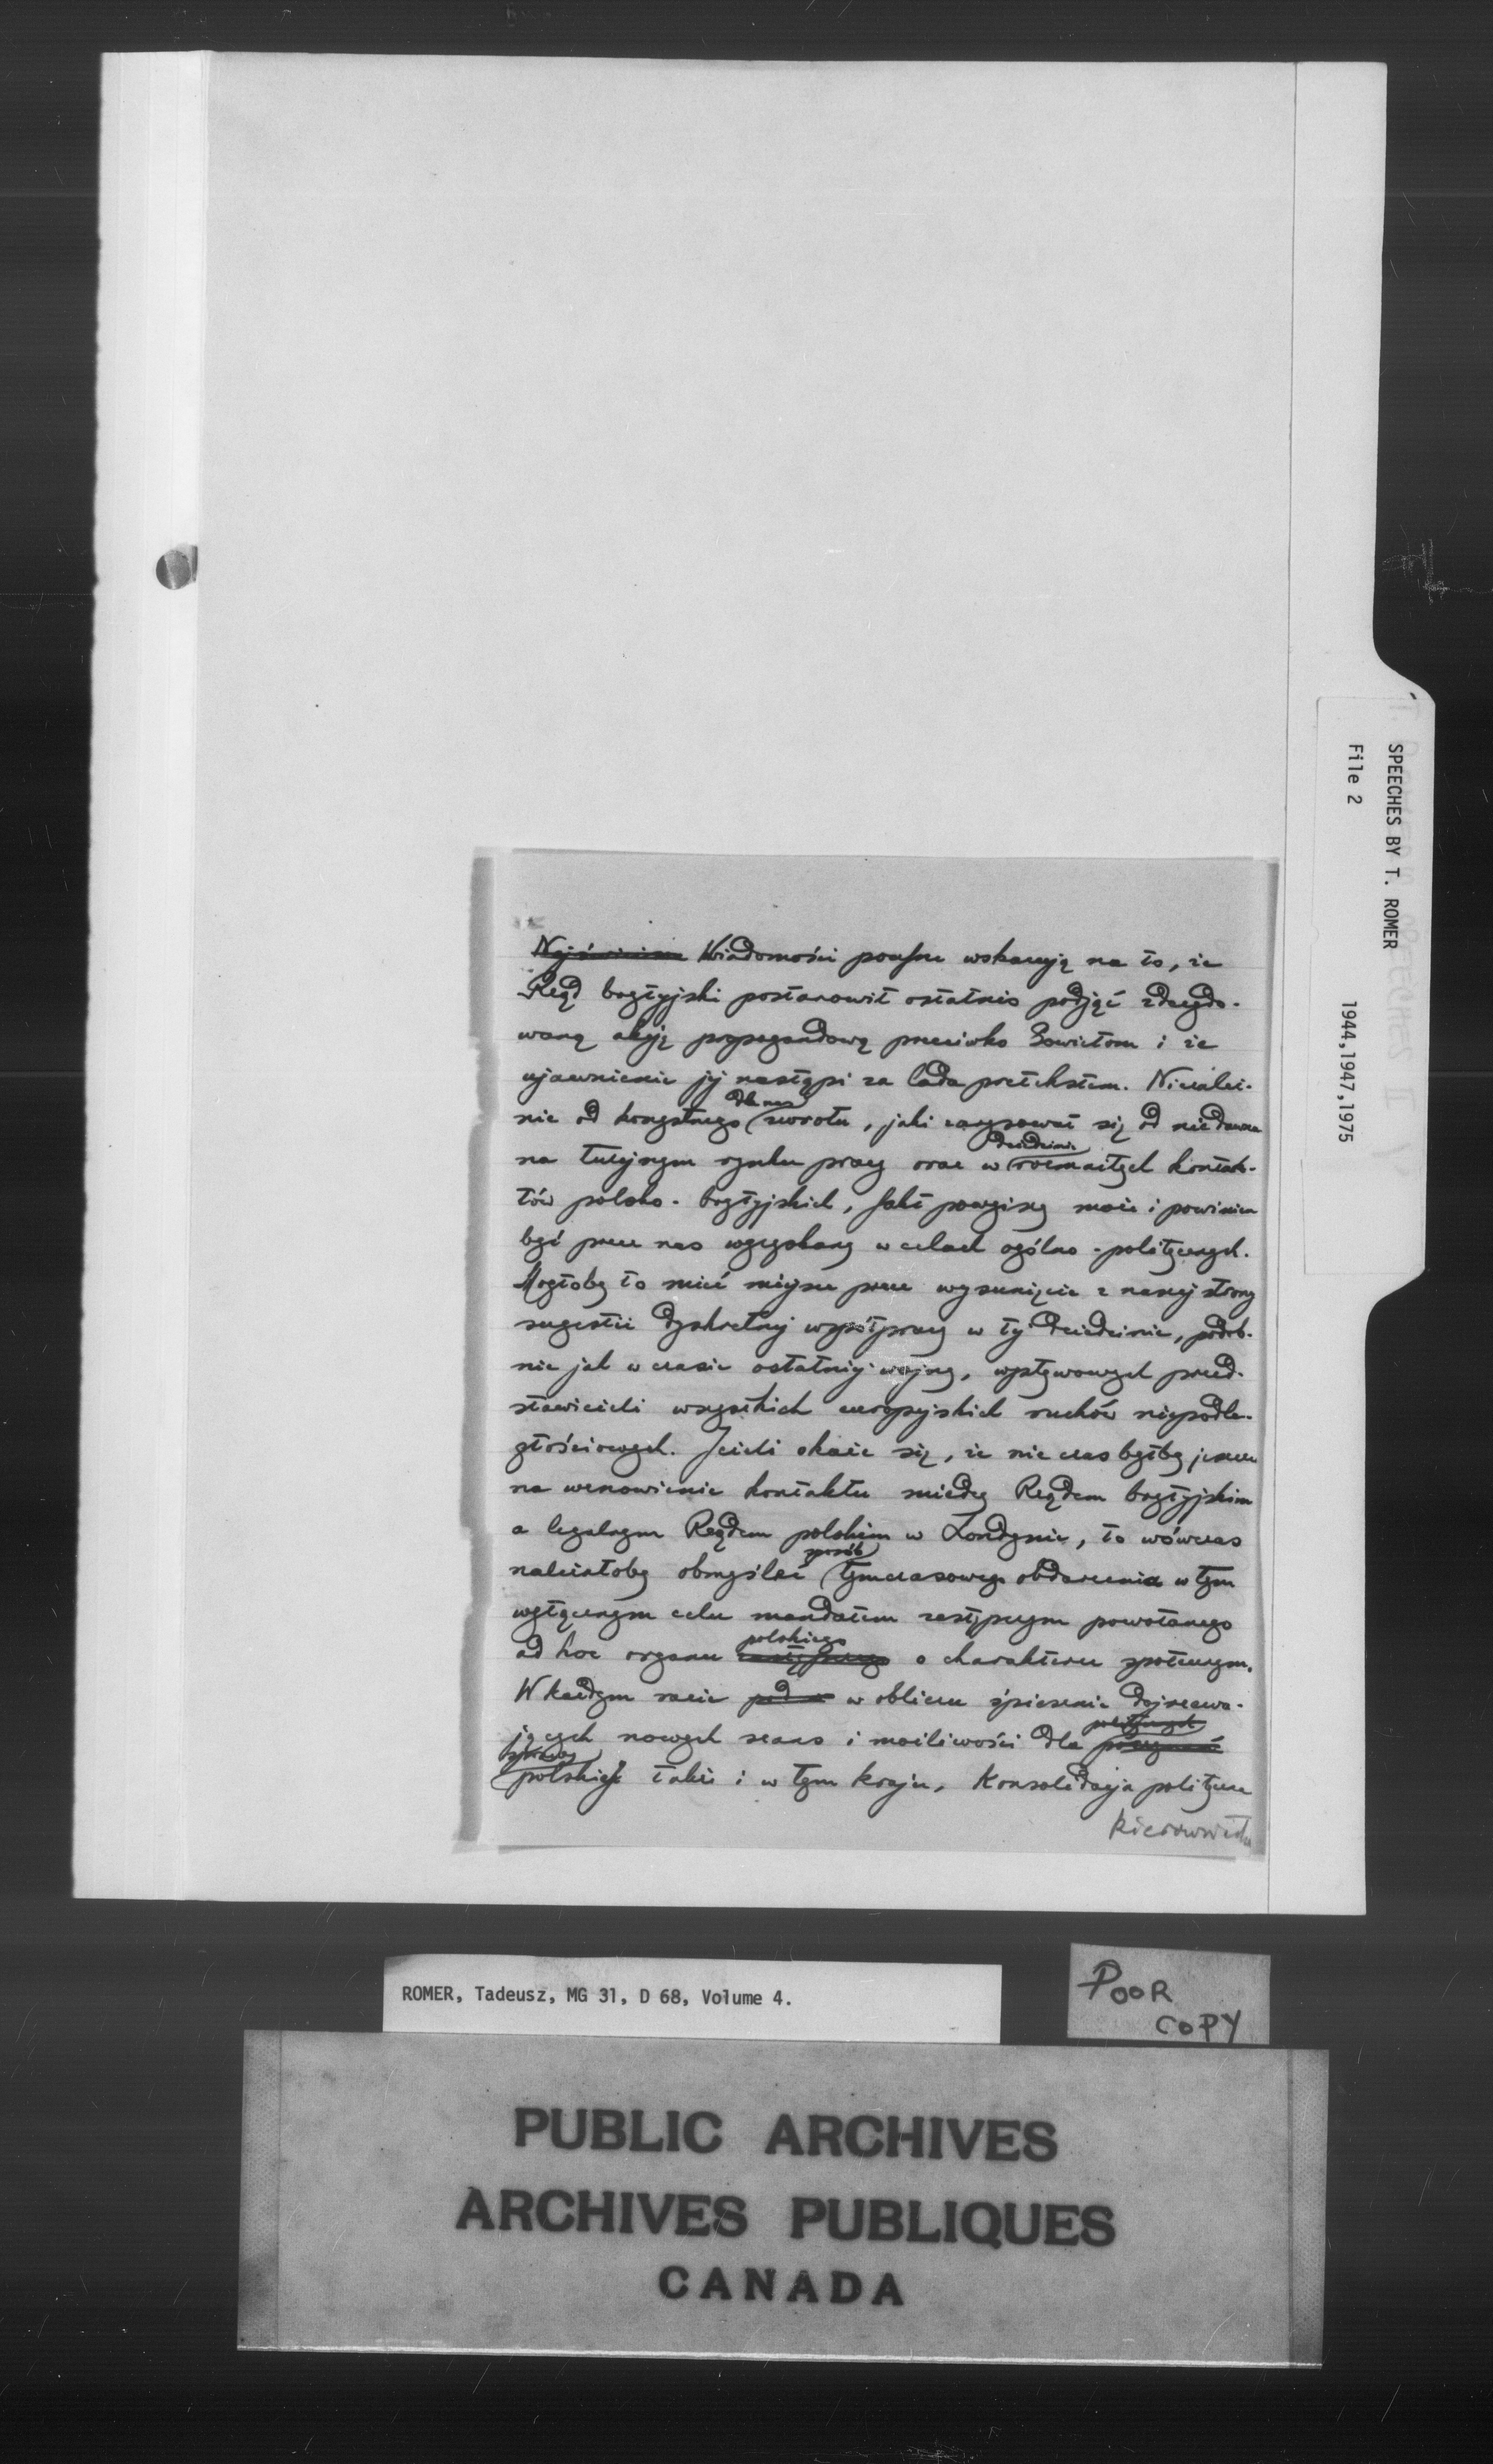 SPEECHES BY T. ROMER
File 2 1944,1947,1975
Wiadomości poufne wskazują na to, że
Rząd brytyjski postanowił ostatnio podjąć zdecydo-
waną akcję propagandową przeciwko Sowietom i że
ujawnienie jej nastąpi za lada pretekstem. Niezależ-
dla nas
nie od korzystnego zwrotu, jaki zarysował się od niedawna
dziedzinie
na tutejszym rynku pracy oraz w rozmaitych kontak-
tów polsko-brytyjskich, fakt powyższy może i powinien
być przez nas wyzyskany w celach ogólno-politycznych.
Mogłoby to mieć miejsce przez wysunięcie z naszej strony
sugestii dyskretnej współpracy w tej dziedzinie, podob-
nie jak w czasie ostatniej wojny, wpływowych przed-
stawicieli wszystkich europejskich ruchów niepodle-
głościowych. Jeżeli okaże się, że nie czas byłby jeszcze
na wznowienie kontaktu między Rządem brytyjskim
a legalnym Rządem polskim w Londynie, to wówczas
sposób
należałoby obmyśleć tymczasowego obdarzenia w tym
wyłącznym celu mandatem zastępczym powołanego
polskiego
ad hoc organu zastępczego o charakterze społecznym.
W każdym razie w obliczu śpiesznie dojrzewa-
politycznych
jących nowych szans i możliwości dla
sprawy
polskiej także i w tym kraju, konsolidacja polityczna
kierownictw
ROMER, Tadeusz, MG 31, D 68, Volume 4.
POOR
COPY
PUBLIC ARCHIVES
ARCHIVES PUBLIQUES
CANADA